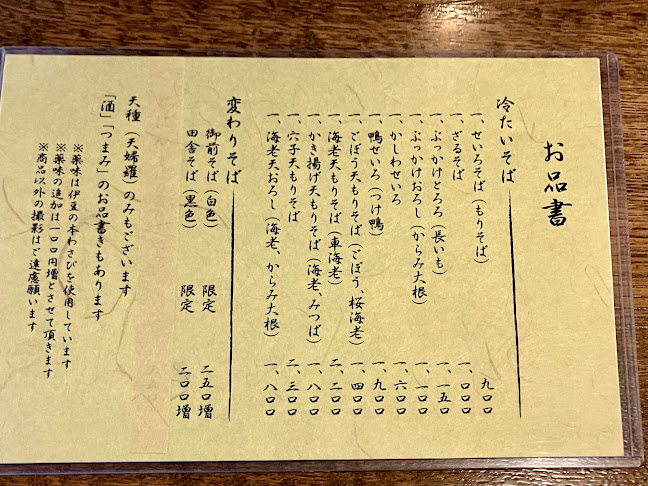 お品書
冷たいそば
一、せいろそば（もりそば） 九〇〇
一、ざるそば 一、〇〇〇
一、ぶっかけとろろ（長いも） 一、一五〇
一、ぶっかけおろし（からみ大根） 一、一〇〇
一、かしわせいろ 一、六〇〇
一、鴨せいろ（つけ鴨） 一、九〇〇
一、ごぼう天もりそば（ごぼう、桜海老） 一、四〇〇
一、海老天もりそば（車海老） 二、二〇〇
一、かき揚げ天もりそば（海老、みつば） 一、八〇〇
一、穴子天もりそば 二、三〇〇
一、海老天おろし（海老、からみ大根） 一、八〇〇
変わりそば
御前そば（白色） 限定 二五〇増
田舎そば（黒色） 限定 二〇〇増
天種（天婦羅）のみもございます
「酒」「つまみ」のお品書きもあります
※薬味は伊豆の本わさびを使用しています
※薬味の追加は一〇〇円増とさせて頂きます
※商品以外の撮影はご遠慮願います